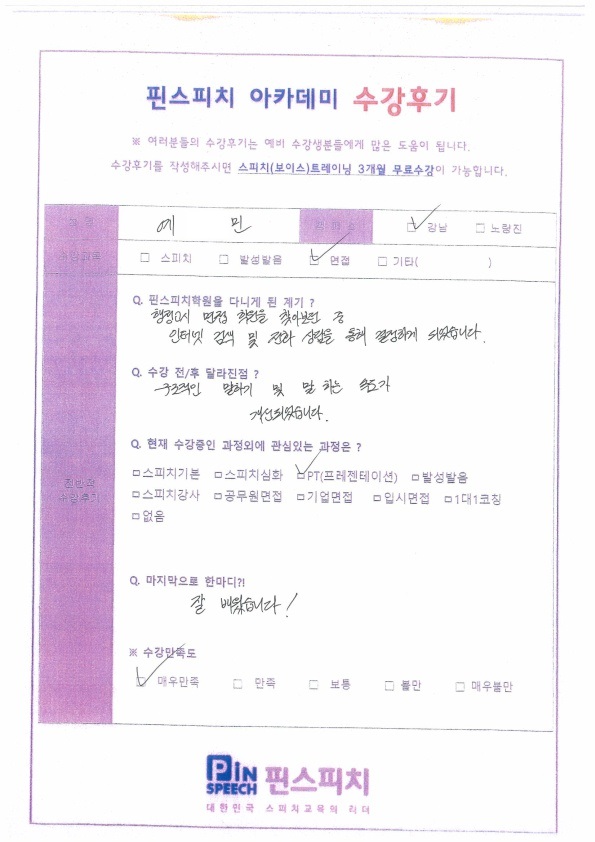 핀스피치 아카데미 수강후기
※ 여러분들의 수강후기는 예비 수강생분들에게 많은 도움이 됩니다.
수강후기를 작성해주시면 스피치(보이스)트레이닝 3개월 무료수강이 가능합니다.
예 민 강남 노량진
수강과목 스피치 발성발음 면접 기타( )
Q. 핀스피치학원을 다니게 된 계기 ?
행정고시 면접 학원을 찾아보던 중
인터넷 검색 및 전화 상담을 통해 결정하게 되었습니다.
Q. 수강 전/후 달라진점 ?
구조적인 말하기 및 말 하는 속도가
개선되었습니다.
Q. 현재 수강중인 과정외에 관심있는 과정은 ?
스피치기본 스피치심화 PT(프레젠테이션) 발성발음
전반적 수강후기
스피치강사 공무원면접 기업면접 입시면접 1대1코칭
없음
Q. 마지막으로 한마디?!
잘 배웠습니다!
※ 수강만족도
매우만족 만족 보통 불만 매우불만
PiN SPEECH 핀스피치
대한민국 스피치교육의 리더